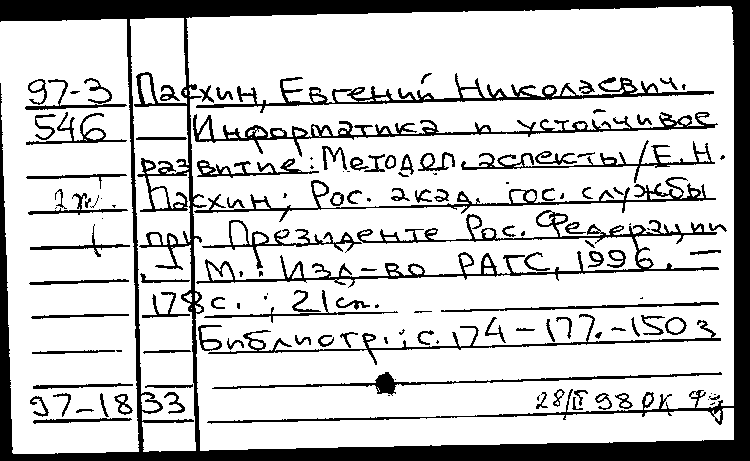 97-3 Пасхин, Евгений Николаевич.
546 Информатика и устойчивое
развитие: Методол. аспекты / Е. Н.
Пасхин; Рос. акад. гос. службы
при Президенте Рос. Федерации
. — М.: Изд-во РАГС, 1996. —
178 с. ; 21 см.
Библиогр.: с. 174-177. - 150 э
97-1833 28/II 98 РК